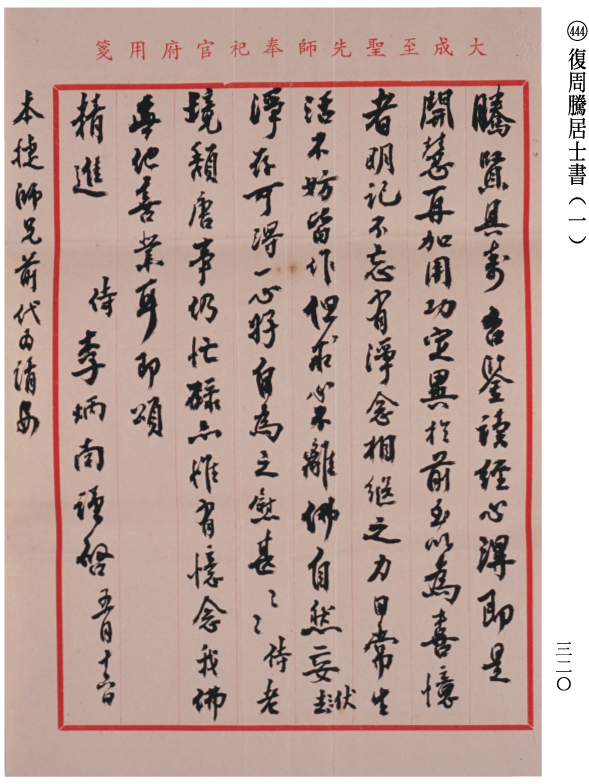 ㊹㊹㊹ 復周騰居士書（一）
大成至聖先師奉祀官府用箋
騰賢具壽 台鑒讀經心得即是
開慧再加用功定異於前至以為喜憶
者明記不忘有淨念相繼之力日常生
活不妨皆作但求心不離佛自然妄伏
淨存可得一心好自為之慰甚〻侍老
境頹唐事仍忙碌亦惟有憶念我佛
無他善業耳即頌
精進
侍李炳南謹啓 五月十六日
本捷師兄前代請安
三二〇